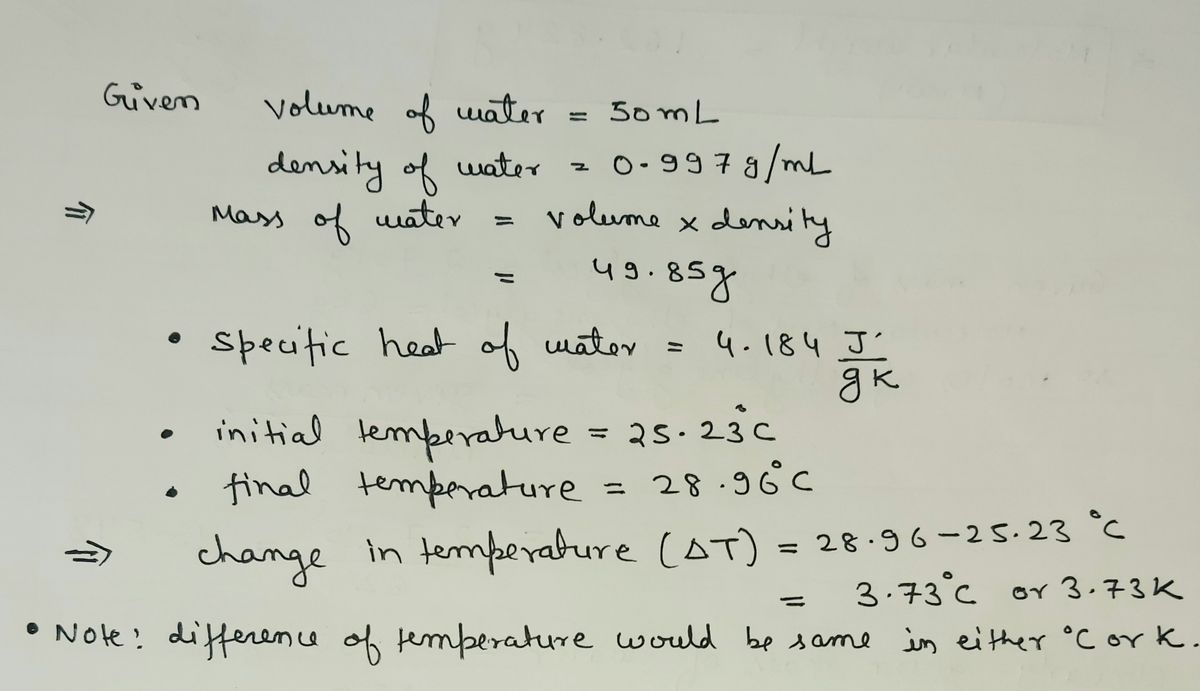 Given volume of water = 50 mL
density of water = 0.997 g/mL
⇒ Mass of water = volume x density
= 49.85g
• specific heat of water = 4.184 J/gK
• initial temperature = 25.23°C
• final temperature = 28.96°C
⇒ change in temperature (ΔT) = 28.96-25.23 °C
= 3.73°C or 3.73K
• Note: difference of temperature would be same in either °C or K.